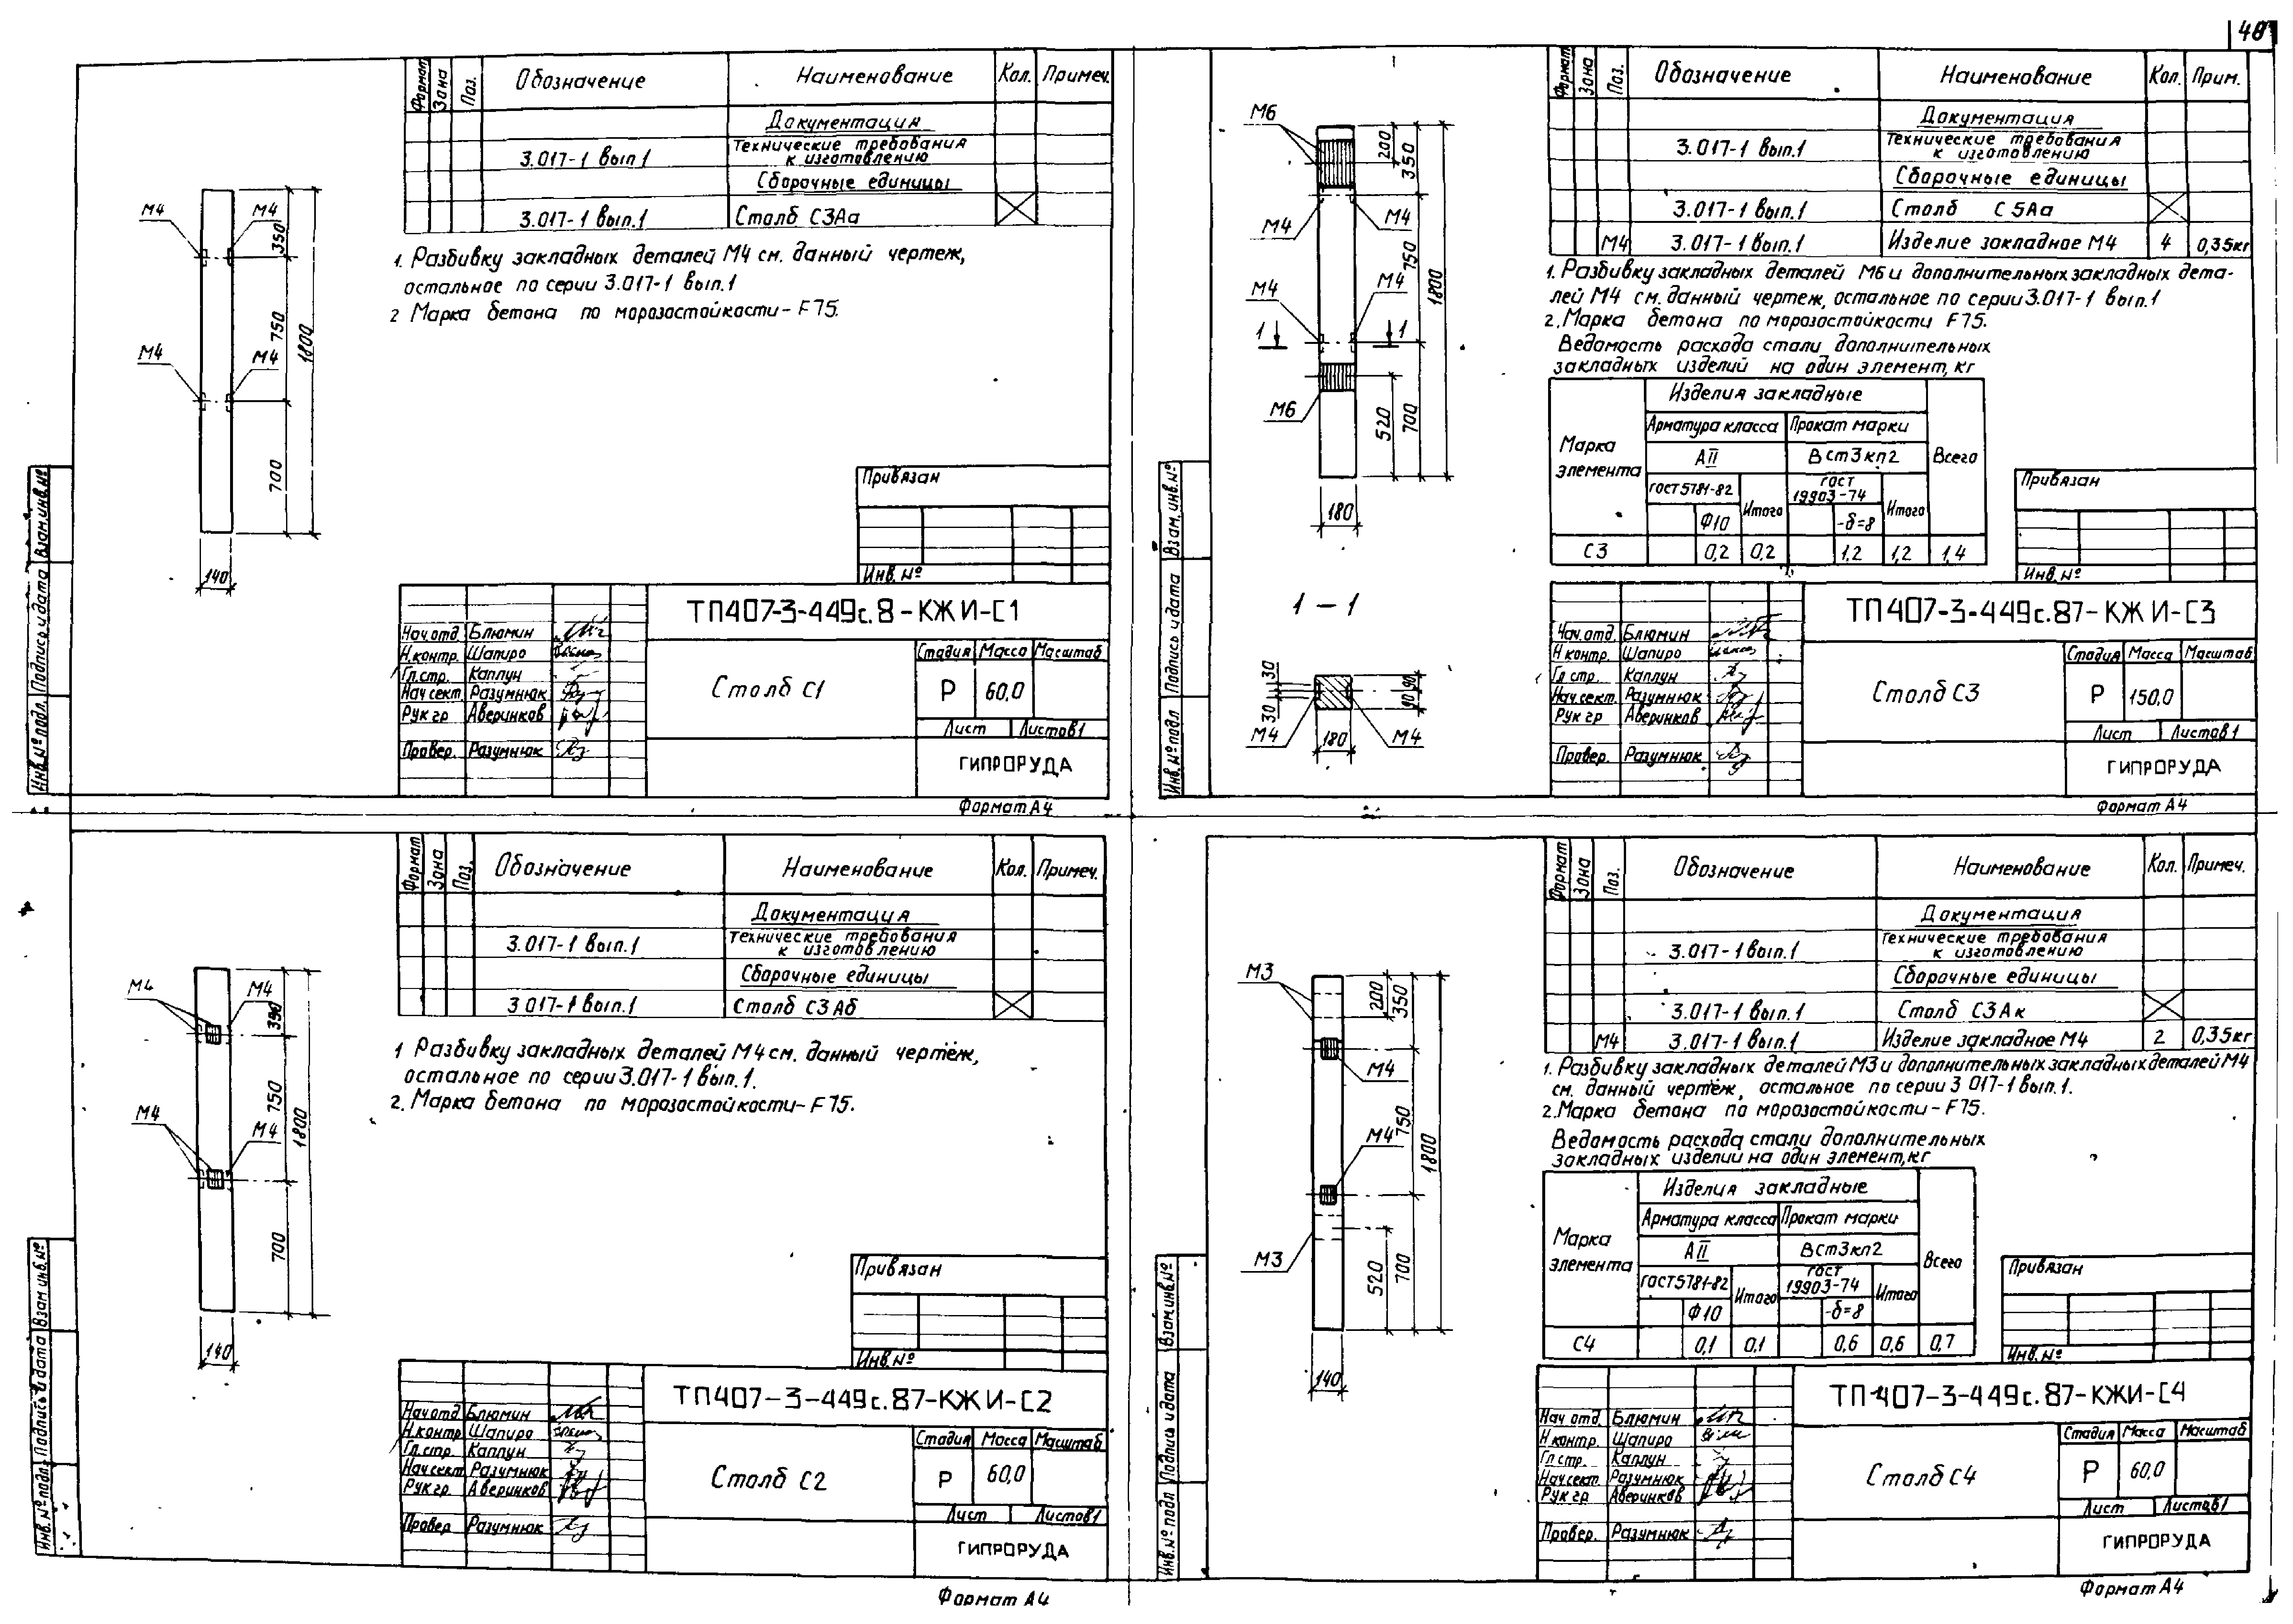 48
Формат
Зона
Поз.
Обозначение
Наименование
Кол.
Примеч.
Документация
3.017-1 вып.1
Технические требования
к изготовлению
Сборочные единицы
3.017-1 вып.1
Столб С3Аа
М4
М4
350
М4
М4
750
1800
700
140
1. Разбивку закладных деталей М4 см. данный чертеж,
остальное по серии 3.017-1 вып.1
2 Марка бетона по морозостойкости - F75.
Привязан
Инв. №
ТП407-3-449с.8-КЖИ-С1
Нач.отд. Блюмин
Н.контр. Шапиро
Гл.стр. Каплун
Нач сект. Разумнюк
Рук гр Аверинков
Провер. Разумнюк
Столб С1
Стадия
Масса
Масштаб
Р
60,0
Лист
Листов 1
ГИПРОРУДА
Формат А4
Инв. № подл.
Подпись и дата
Взам.инв.№
Формат
Зона
Поз.
Обозначение
Наименование
Кол.
Прим.
Документация
3.017-1 вып.1
Технические требования
к изготовлению
Сборочные единицы
3.017-1 вып.1
Столб С5Аа
М4
3.017-1 вып.1
Изделие закладное М4
4
0,35кг
М6
200
350
М4
М4
750
М4
М4
1800
1
1
М6
520
700
180
1-1
30
30
90 90
М4
180
М4
1. Разбивку закладных деталей М6 и дополнительных закладных дета-
лей М4 см. данный чертеж, остальное по серии 3.017-1 вып.1
2. Марка бетона по морозостойкости F75.
Ведомость расхода стали дополнительных
закладных изделий на один элемент, кг
Марка
элемента
Изделия закладные
Арматура класса
Прокат марки
АII
Вст3кп2
Всего
гост5781-82
Итого
гост
19903-74
Итого
Ф10
-δ=8
С3
0,2
0,2
1,2
1,2
1,4
Привязан
Инв. №
ТП407-3-449с.87-КЖИ-С3
Нач.отд. Блюмин
Н контр. Шапиро
Гл стр. Каплун
Нач.сект. Разумнюк
Рук гр Аверинков
Провер. Разумнюк
Столб С3
Стадия
Масса
Масштаб
Р
150,0
Лист
Листов 1
ГИПРОРУДА
Формат А4
Инв. № подл
Подпись и дата
Взам.инв.№
Формат
Зона
Поз.
Обозначение
Наименование
Кол.
Примеч.
Документация
3.017-1 вып.1
Технические требования
к изготовлению
Сборочные единицы
3 017-1 вып.1
Столб С3Аб
М4
М4
750
М4
М4
1800
700
140
1 Разбивку закладных деталей М4 см. данный чертёж,
остальное по серии 3.017-1 вып.1.
2. Марка бетона по морозостойкости - F75.
Привязан
Инв. №
ТП407-3-449с.87-КЖИ-С2
Нач отд Блюмин
Н контр Шапиро
Гл.стр. Каплун
Нач сект Разумнюк
Рук гр. Аверинков
Провер Разумнюк
Столб С2
Стадия
Масса
Масштаб
Р
60,0
Лист
Листов 1
ГИПРОРУДА
Формат А4
Инв. № подл.
Подпись и дата
Взам инв.№
Формат
Зона
Поз.
Обозначение
Наименование
Кол.
Примеч.
Документация
3.017-1 вып.1
Технические требования
к изготовлению
Сборочные единицы
3.017-1 вып.1
Столб С3Ак
М4
3.017-1 вып.1
Изделие закладное М4
2
0,35кг
М3
200
350
М4
М4
750
1800
М3
520
700
140
1. Разбивку закладных деталей М3 и дополнительных закладных деталей М4
см. данный чертёж, остальное по серии 3 017-1 вып.1.
2. Марка бетона по морозостойкости - F75.
Ведомость расхода стали дополнительных
закладных изделий на один элемент, кг
Марка
элемента
Изделия закладные
Арматура класса
Прокат марки
АII
Вст3кп2
Всего
гост5781-82
Итого
гост
19903-74
Итого
Ф10
-δ=8
С4
0,1
0,1
0,6
0,6
0,7
Привязан
Инв. №
ТП407-3-449с.87-КЖИ-С4
Нач отд. Блюмин
Н контр. Шапиро
Гл стр. Каплун
Нач сект. Разумнюк
Рук гр Аверинков
Провер. Разумнюк
Столб С4
Стадия
Масса
Масштаб
Р
60,0
Лист
Листов 1
ГИПРОРУДА
Формат А4
Инв. № подл
Подпись и дата
Взам.инв.№